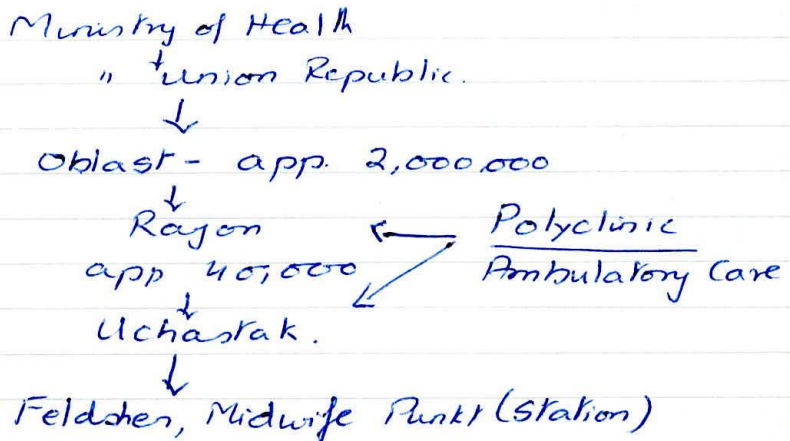 Ministry of Health
" Union Republic.
Oblast - app. 2,000,000
Rayon
Polyclinic
app 40,000
Ambulatory Care
Uchastak.
Feldsher, Midwife Punkt (Station)